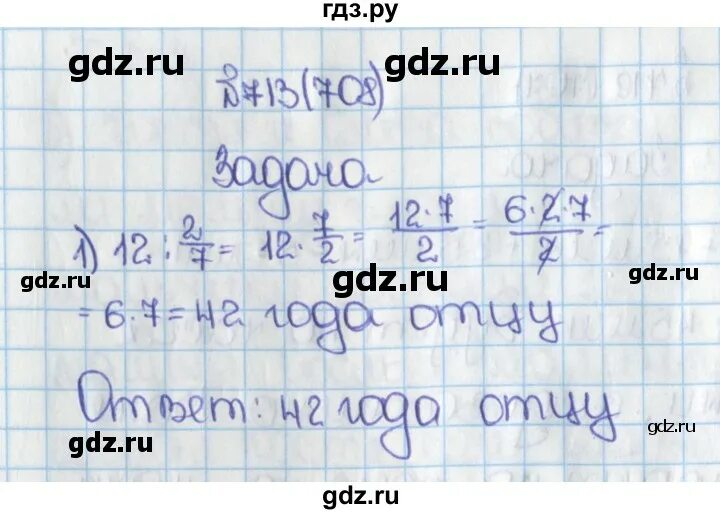 гдз.ру
gdz.ru
gdz.ru
№713(708)
Задача
gdz.ru
gdz.ru
1) 12 : 2/7 = 12 · 7/2 = 12·7/2 = 6·2·7/2 =
gdz.ru
gdz.ru
gdz.ru
= 6·7 = 42 года отцу
gdz.ru
gdz.ru
Ответ: 42 года отцу
gdz.ru
gdz.ru
gdz.ru
gdz.ru